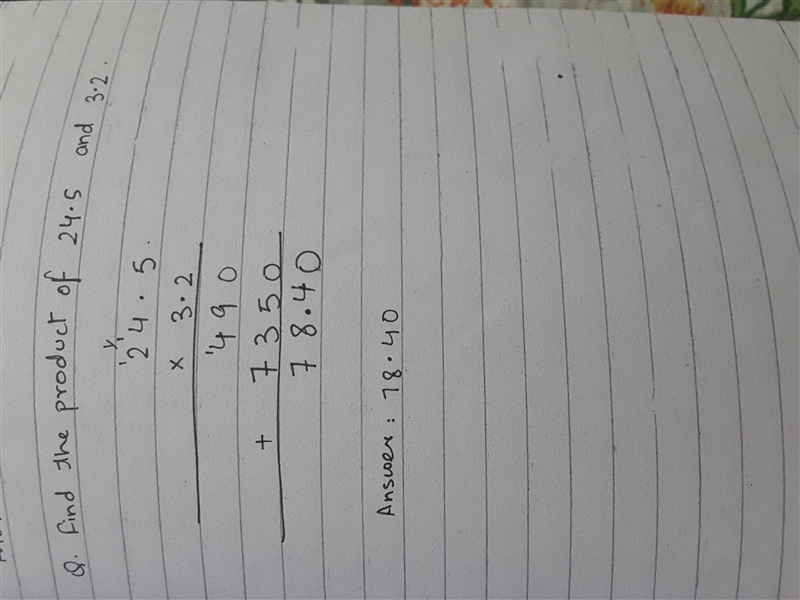 Q. Find the product of 24.5 and 3.2.
24.5.
× 3.2
490
+ 7350
78.40
Answer: 78.40